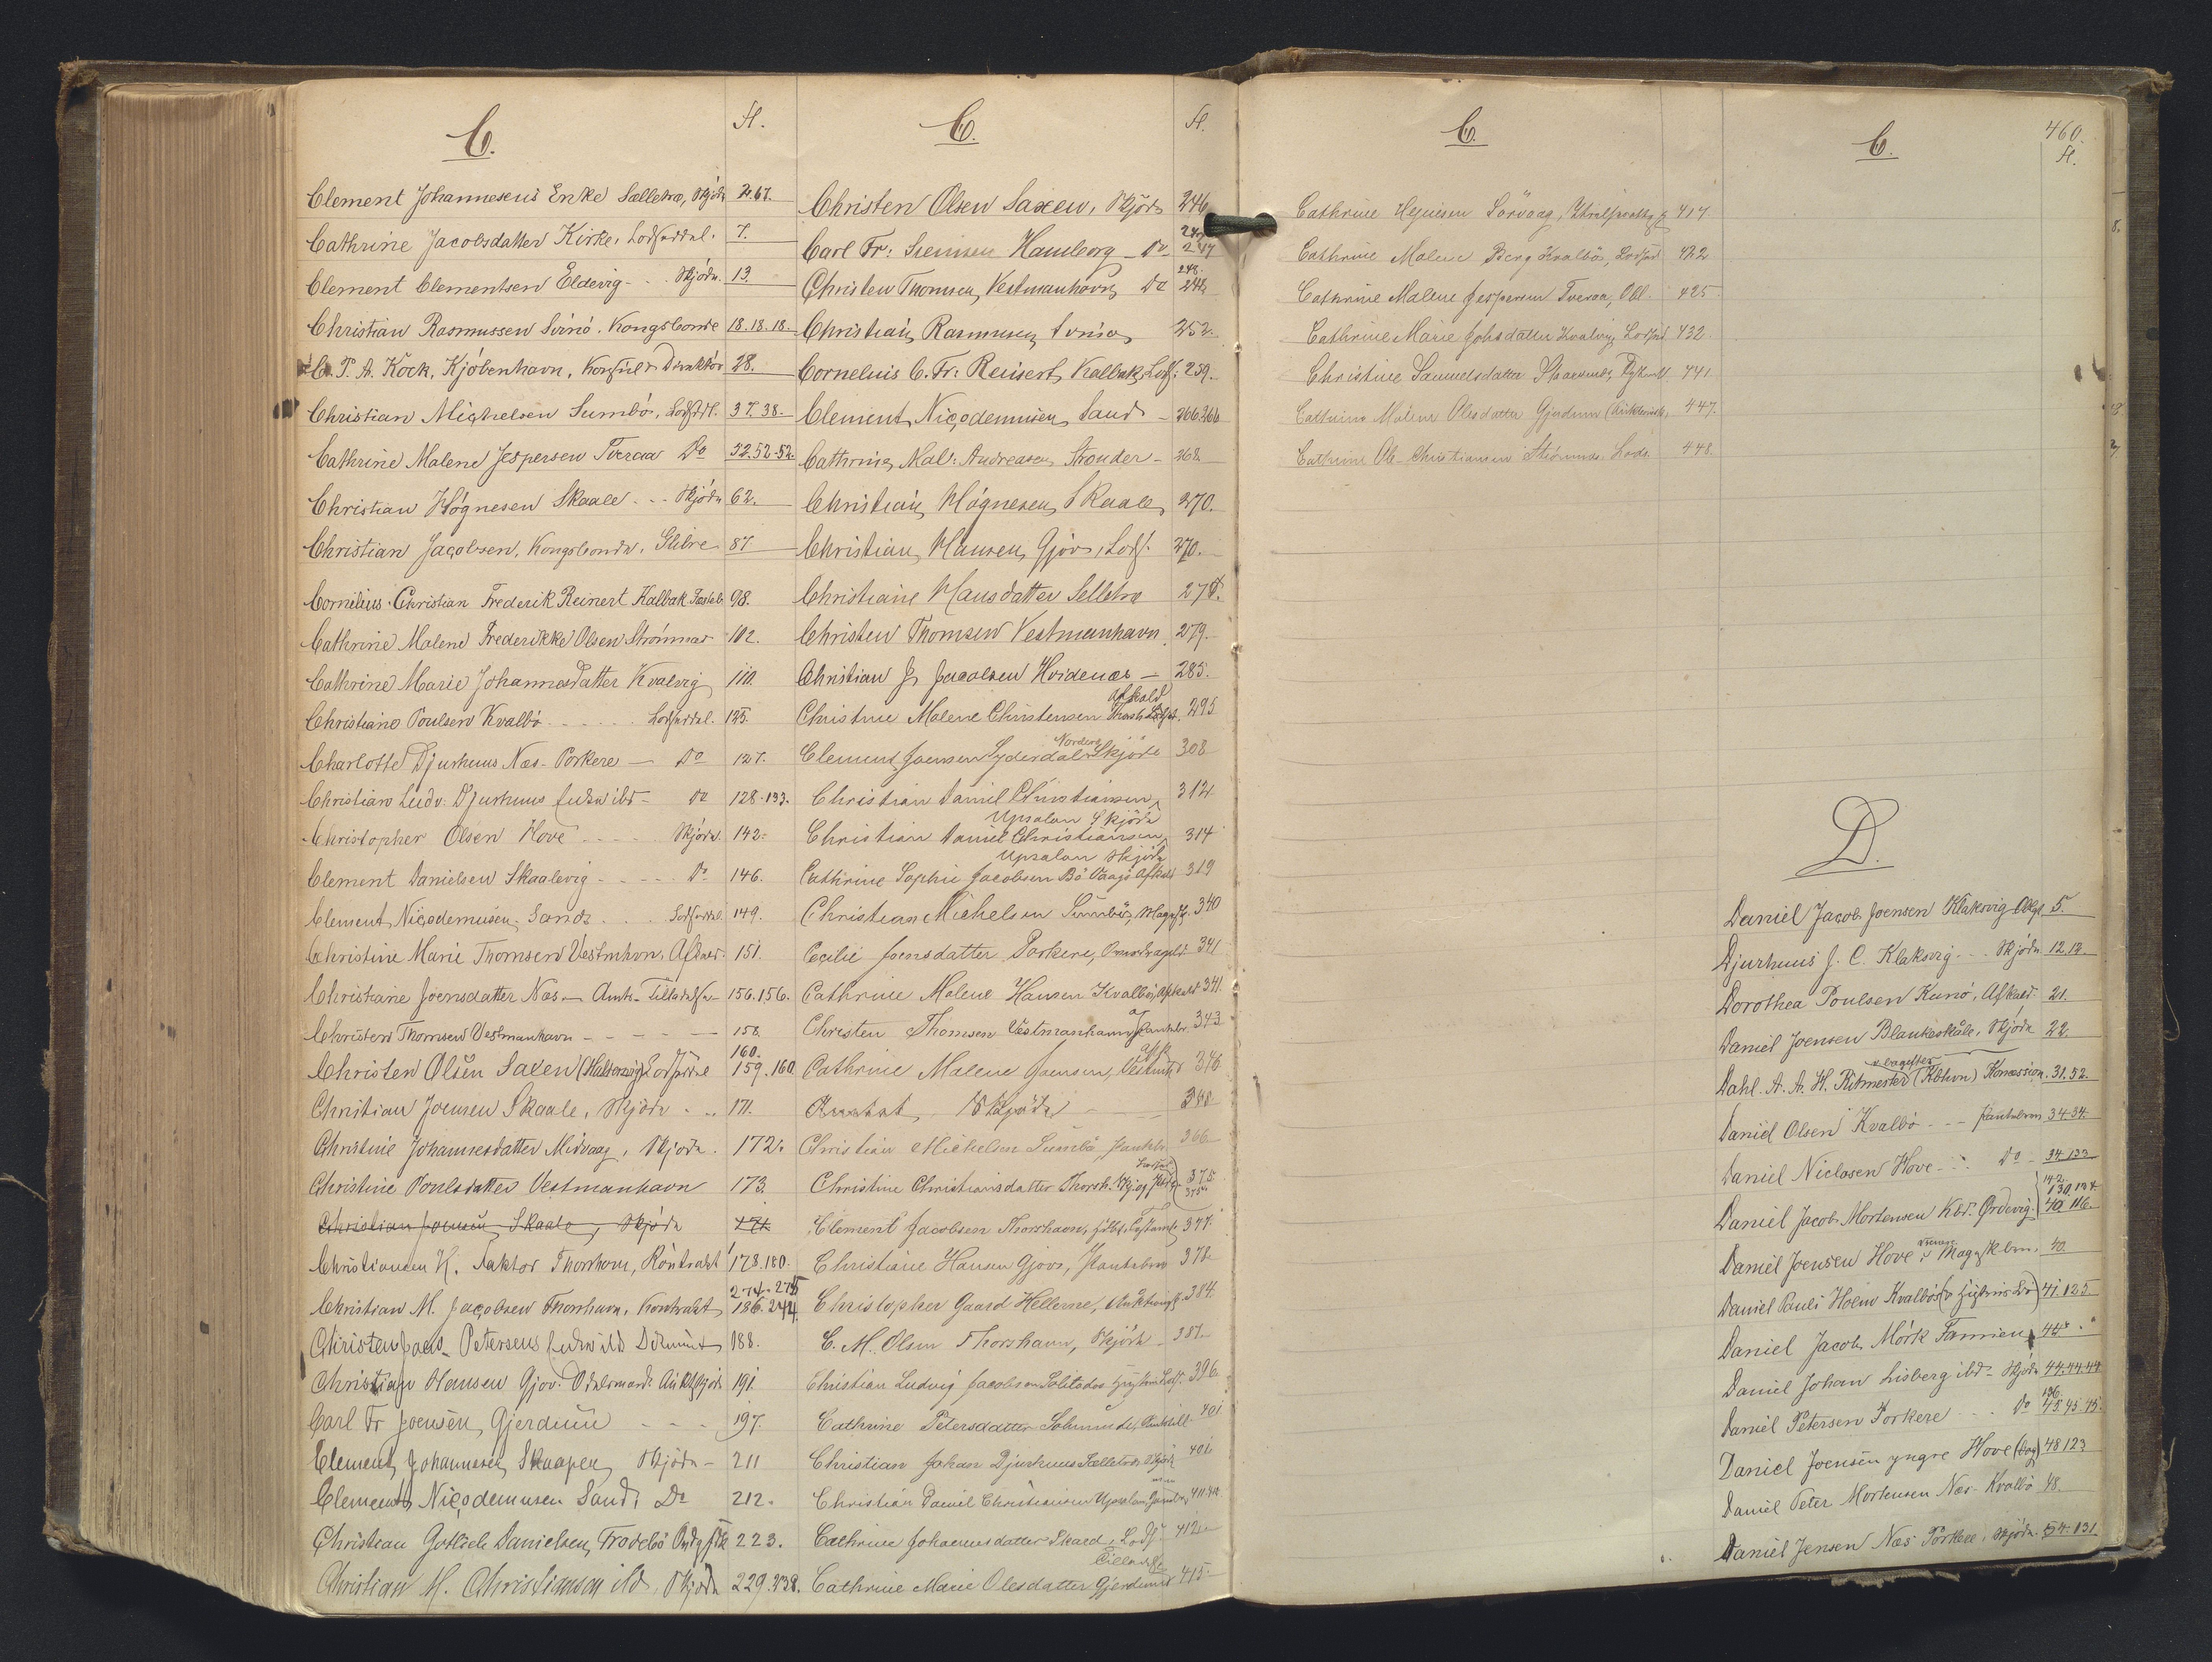 C.
Fl.
Clement Johannesens Enke Selletræ, Skjöde 2.67.
Cathrine Jacobsdatter Kirke, Lodseddel. 7.
Clement Clementsen Eldevig - Skjöde. 13.
Christian Rasmussen Svinö. Kongsbonde 18.18.18
C. P. A. Kock, Kjöbenhavn, Konsul & Direktör 28.
Christian Michelsen Sumbö, Lodsdl. 37.38.
Cathrine Malene Jespersen Tveraa Do 52.52.52.
Christian Högnesen Skaale - - Skjöde 62.
Christian Jacobsen, Kongsbonde, Glibre 87
Cornelius Christian Frederik Reinert Kalbak 98.
Cathrine Malene Frederikke Olsen Strömnæs 102.
Cathrine Marie Johannesdatter Kvalvig 110.
Christiane Poulsen Kvalbö - - - Lodseddel. 125.
Charlotte Djurhuus Næs - Porkere — Do 127.
Christian Ludv. Djurhuus ibd - Do 128-133.
Christopher Olsen Hove - - - Skjöde. 142.
Clement Danielsen Skaalevig - - - Do 146.
Clement Nicodemusen, Sand. . . Lodseddel. 149.
Christine Marie Thomsen Vestmhvn, Afkald. 151.
Christiane Joensdatter Næs — Amts- 156.156.
Christen Thomsen Vestmanhavn - - - — 158.
160.
Christen Olsen Saxen (Haldorsvig) Lodseddel 159.160
Christian Joensen Skaale, Skjöde . .. 171.
Christine Johannesdatter Midvaag, Skjöde. 172.
Christine Poulsdatter Vestmanhavn 173.
Christian Joensen Skaale, Skjöde 171
Christiansen H. Faktor Thorshavn, Kontrakt 178.180.
274.275
Christian M. Jacobsen Thorshavn, Kontrakt 186.244
Christen Petersens 188.
Christian Hansen Gjov. Odelsmand. 191.
Carl Fr Joensen, Gjerdum - - - 197.
Clement Johannesen Skaapen Skjöde - 211
Clement Nicodemusen Sand, Do 212.
Christian Gotlieb Danielsen, Frodebö 223.
Christian M. Christiansen ibd, Skjöde 229.238.
C.
Fl.
Christen Olsen Saxen, Skjöde 246
Carl Fr: Hamborg - Do 247
248.
Christen Thomsen, Vestmanhavn Do 248
Christian Rasmusen Svinö 252.
Cornelius C. Fr: Reinert, Kalbak, Lods: 259.
Clement Nicodemusen Sand - 266.266
Cathrine Mal: Andreasen Strender - 268.
Christian Högnesen, Skaale, 270.
Christian Hansen, Gjov, Lods. 270.
Christiane Hansdatter Selletræ 278.
Christen Thomsen Vestmanhavn 279.
Christian J. Jacobsen Hvidenæs — 285.
Afkald
Christine Malene Christensen Thorsh. 295
Nordere
Clement Joensen Syderdal Skjöde 308
Christian Daniel Christiansen, 312
Upsalan Skjöde
Christian Daniel Christiansen, 314
Upsalan Skjöde
Cathrine Sophie Jacobsen Bö Vaagö Afkald 319
Christian Michelsen Sumbö, Mageskj. 340
Cecilie Joensdatter Porkere, 341
Cathrine Malene Hansen Kvalbö, Afkald 341.
Christen Thomsen Vestmanhavn Pantebr. 343
Cathrine Malene Joensen, Vestmh. 346
348
Christian Michelsen Sumbö, Pantebr. 366
Christine Christiansdatter Thorsh. Skj. og 375.
375
Clement Jacobsen Thorshavn, 377.
Christiane Hansen Gjov, Pantebrev 378
Christopher Gaard Hellerne, Auktionsskj. 384
C. M. Olsen Thorshavn, Skjöde - 387
Christian Ludvig Jacobsen 396
Cathrine Petersdatter 401
Christian Johan Djurhuus Selletræ, Skjöde 401
Christian Daniel Christiansen Upsalan, 411.411
Cathrine Johannesdatter Skard, Lods. 412
Cathrine Marie Olesdatter Gjerdum 415.
C.
Cathrine Sörvaag, 417
Cathrine Malene Berg Kvalbö, Lodsed. 422
Cathrine Malene Jespersen Tveraa, Obl. 425
Cathrine Marie Johsdatter Kvalvig, Lodsed. 432.
Christine Samuelsdatter 441.
Cathrine Malene Olesdatter Gjerdum 447.
Cathrine Ol. Christiansen Strömnæs. Lods. 448.
C.
460.
Fl.
D.
Daniel Jacob Joensen Klaksvig Oblg. 5.
Djurhuus J. C. Klaksvig - - Skjöde 12.12.
Dorothea Poulsen Kunö, Afkald. 21.
Daniel Joensen Blankeskaale, Skjöde 22.
Dahl. A. A. H. Ritmester (Kbhvn) Koncession. 31.52.
Daniel Olsen Kvalbö - - Pantebrev 34.34.
Daniel Niclasen Hove - . Do - 34.133
142.
130.134.
Daniel Jacob Mortensen Kbr. Ördevig. 40.116.
Daniel Joensen Hove, Mageskbrev. 40.
Daniel Pauli Holm Kvalbö 41.125
Daniel Jacob Mörk Famien 44.
Daniel Johan Lisberg ibd - Skjöde 44.44.44
136.
Daniel Petersen Porkere - . Do 45.45.45.
Daniel Joensen yngre Hove 48.123
Daniel Peter Mortensen Næs - Kvalbö 48.
Daniel Jensen Næs Porkere, Skjöde. 54.131